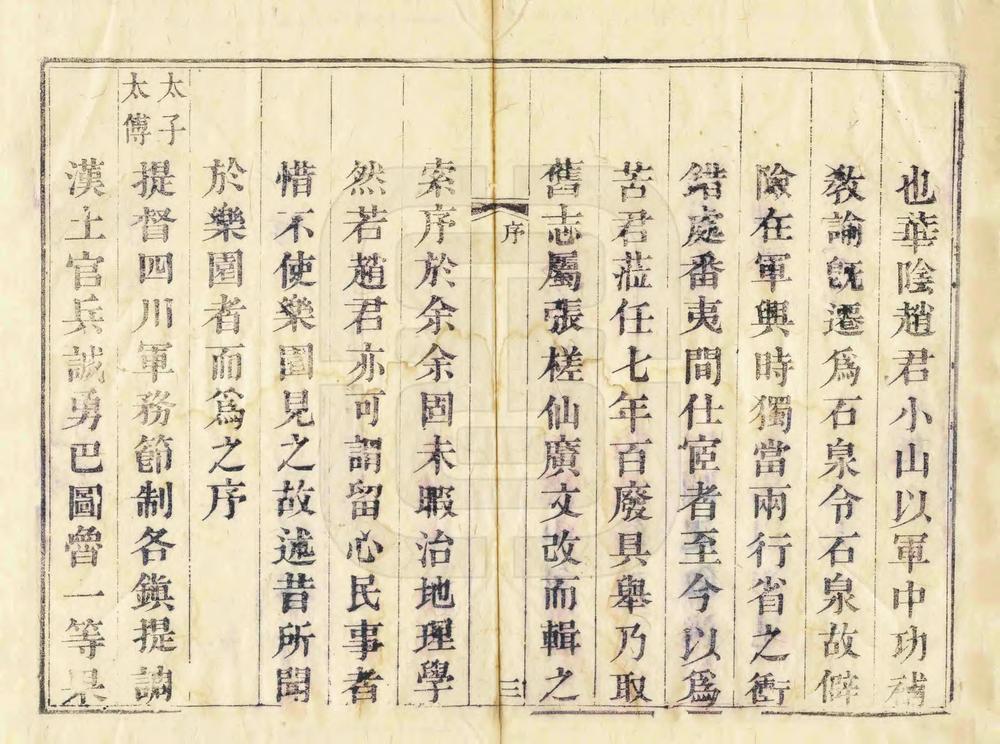 也華陰趙君小山以軍中功補
敎諭旣遷爲石泉令石泉故僻
險在軍興時獨當兩行省之衝
錯處番夷間仕宦者至今以爲
苦君蒞任七年百廢具舉乃取
舊志屬張槎仙廣文改而輯之
序
三
索序於余余固未暇治地理學
然若趙君亦可謂留心民事者
惜不使樂園見之故述昔所聞
於樂園者而爲之序
太子
太傅
提督四川軍務節制各鎭提調
漢土官兵誠勇巴圖魯一等果